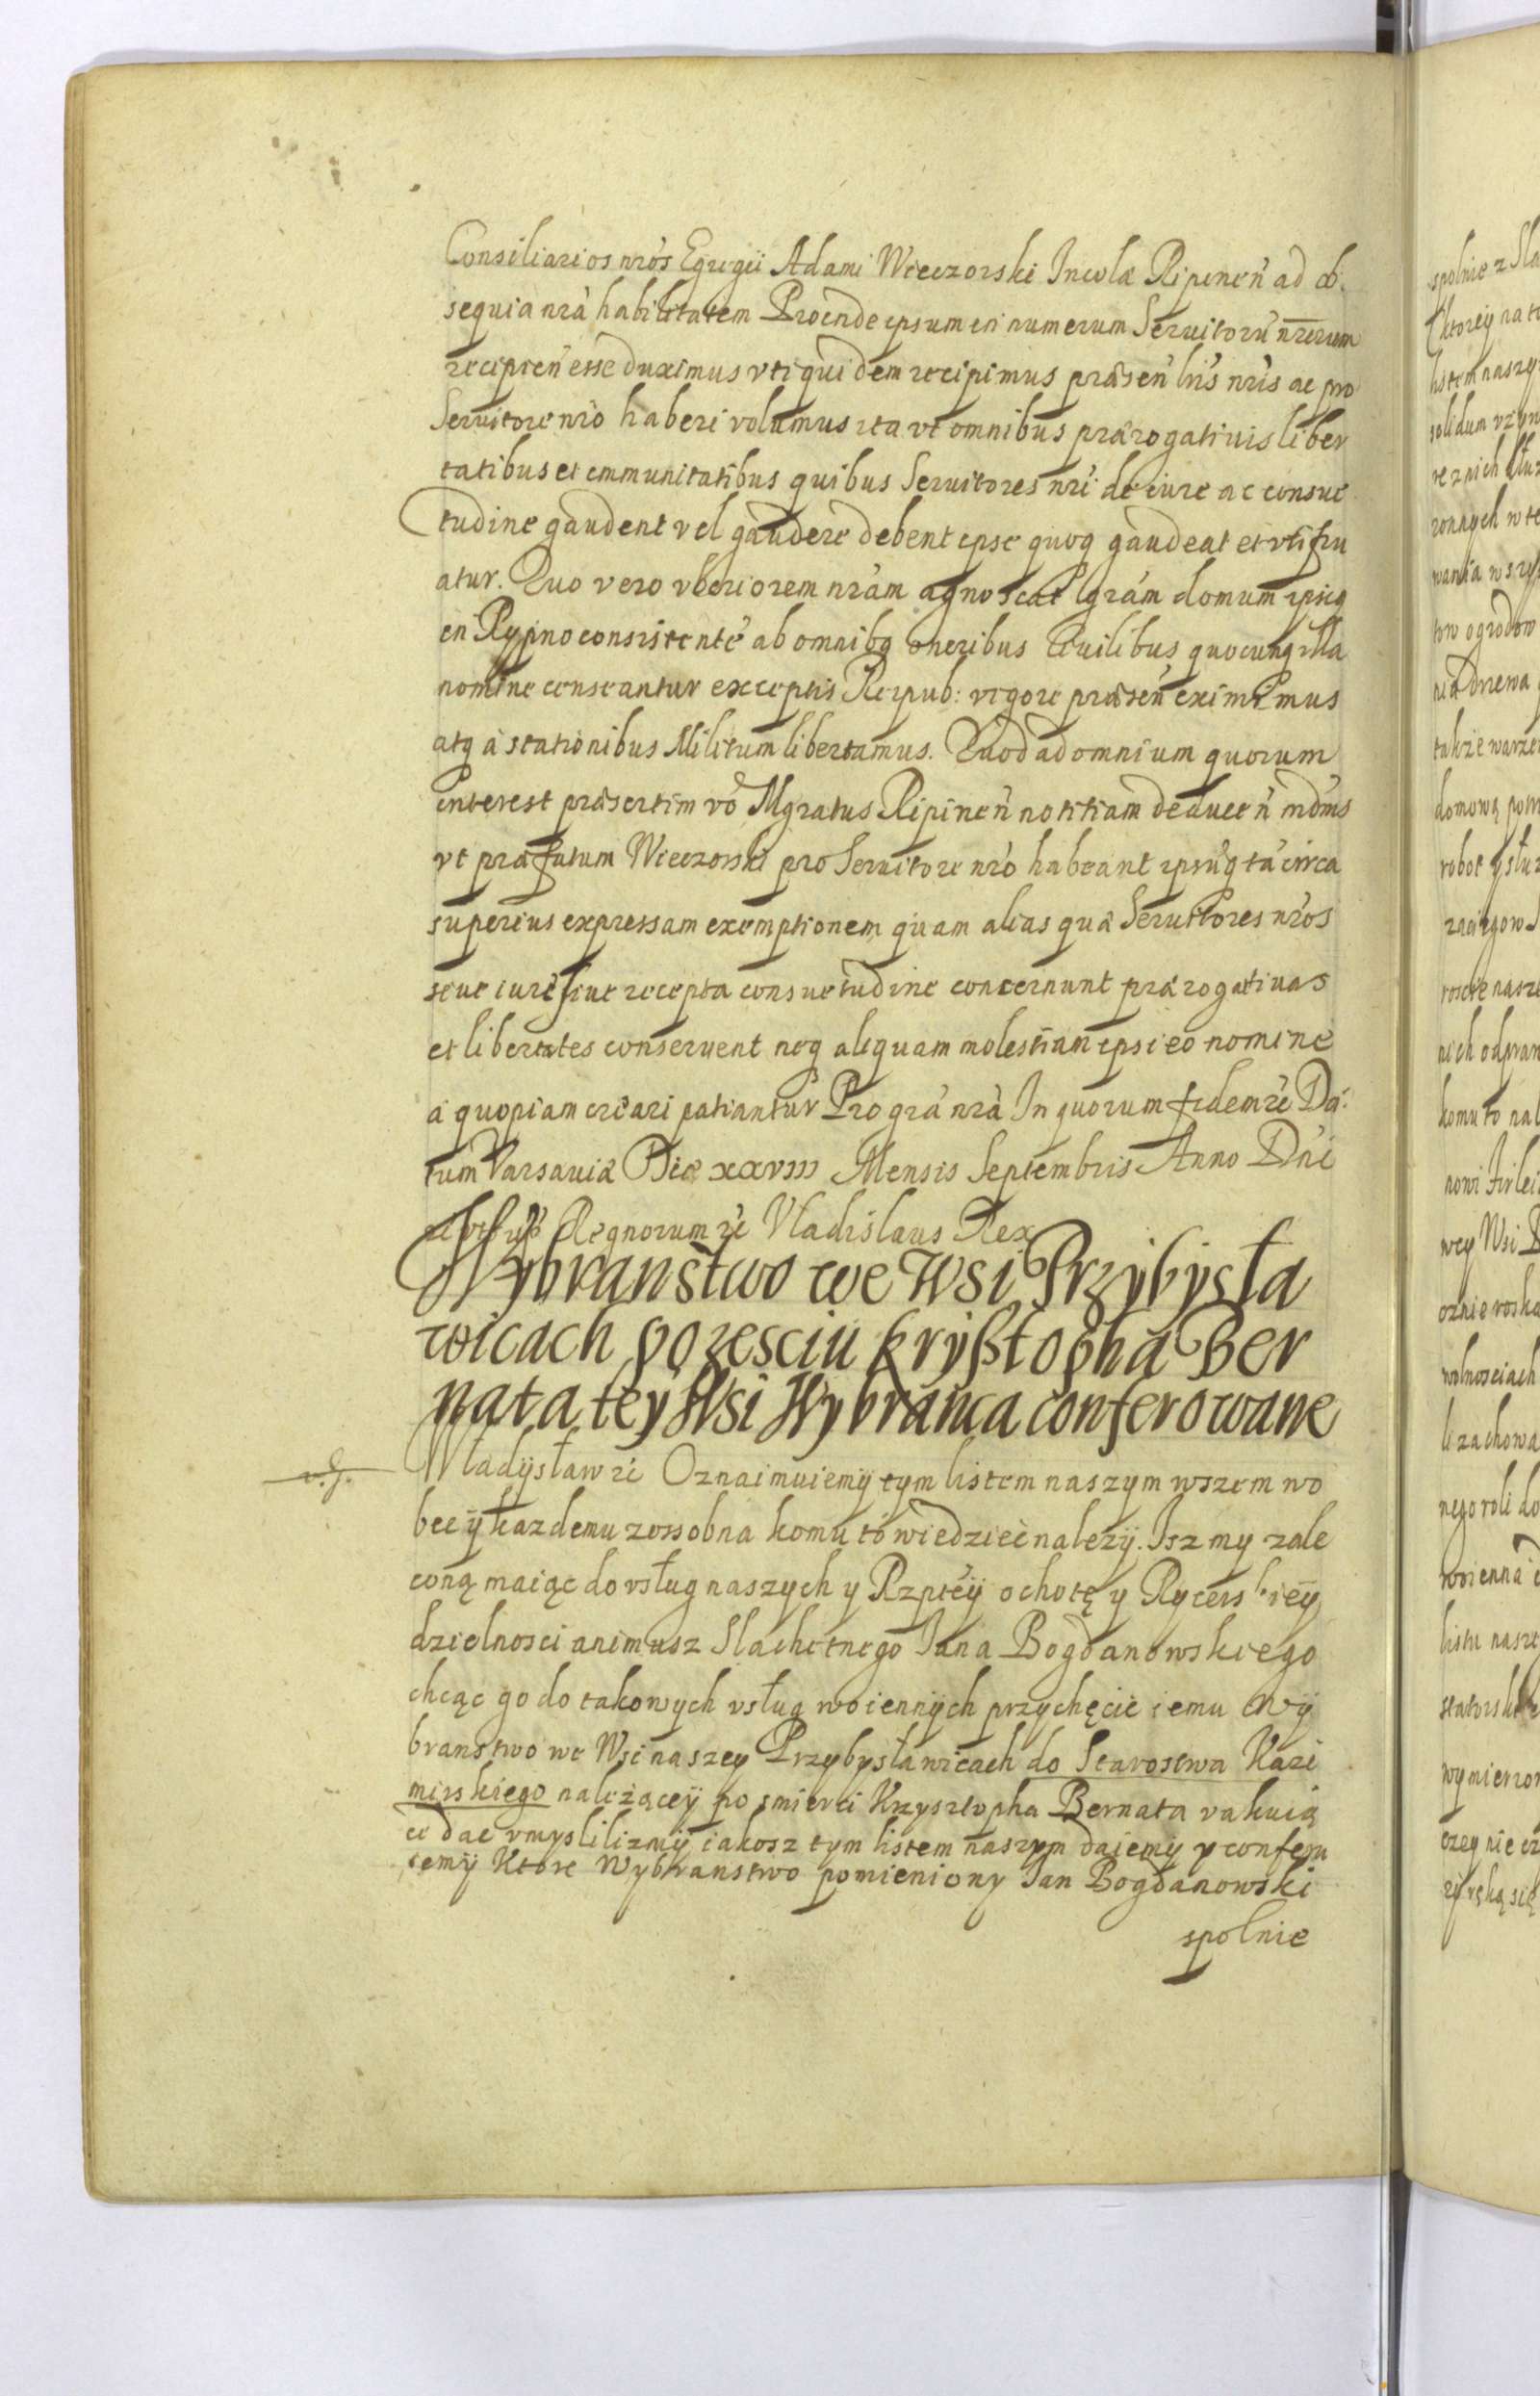 Consiliarios nr̃os Egregii Adami Wieczorski Incolæ Ripinen̄ ad ob
sequia nrà habilitatem Proinde ipsum in numerum Seruitorū nr̄orum
recipien̄ esse duximus vti quidem recipimus præsen̄ lris nris ac pro
Seruitore nrõ haberi volumus ita vt omnibus prærogatiuis liber
tatibus et immunitatibus quibus Seruitores nri de iure ac consue
tudine gaudent vel gaudere debent ipse quoq gaudeat et vti fru
atur. Quo vero vberiorem nrãm agnoscat grãm domum ipsiq
in Rypno consistentē ab omnibq oneribus Ciuilibus quocunq illa
nomine censeantur exceptis Reipub: vigore præsen̄ eximimus
atq à stationibus Militum libertamus. Quod ad omnium quorum
interest præsertim vō Mgratus Ripinen̄ notitiam deducen̄ mdm̃s
vt præfatum Wieczorski pro Seruitore nrõ habeant ipsūq tā circa
superius expressam exemptionem quam alias quæ Seruitores nrõs
siue iure siue recepta consuetudine concernunt prærogatiuas
et libertates conseruent neq aliquam molestiam ipsi eo nomine
a quopiam creari patiantur Pro grã nrà In quorum fidem zc̃ Dà:
tum Varsauiæ Die xxviii Mensis Septembris Anno Dn̄i
Regnorum zc̃ Vladislaus Rex
Wybranstwo we Wsi Przybysła
wicach po zesciu Krysztopha Ber
nata tey Wsi Wybranca conferowane
Władysław zc̃ Oznaimuiemy tym listem naszym wszem wo
bec y każdemu zossobna komu to wiedzieć należy. Isz my zale
coną maiąc do vsług naszych y Rzpte̊y ochotę y Rycerskiey
dzielnosci animusz Slachetnego Jana Bogdanowskiego
chcąc go do takowych vsług woiennych przychęcić iemu Wy
branstwo we Wsi naszey Przybysławicach do Starostwa Kazi
mirskiego należącey po smierci Krzysztopha Bernata vakuią
ce dac vmyslilizmy iakosz tym listem naszym daiemy y conferu
iemy Ktore Wybranstwo pomieniony Jan Bogdanowski
spolnie